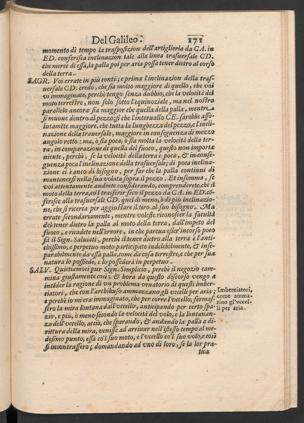 Del Galileo. 171
momento di tempo la trasposizion dell'artiglieria da CA. in
ED. conferisca inclinazion tale alla linea trasversale CD.
che mercè di essa, la palla poi per aria possa tener dietro al corso
della terra.
SAGR. Voi errate in più conti; e prima l'inclinazion della trasversale
CD. credo, che sia molto maggiore di quello, che voi
vi immaginate, perchè tengo senza dubbio, che la velocità del
moto terrestre, non solo sotto l'equinoziale, ma nel nostro
parallelo ancora sia maggior che quella della palla, mentre
si muove dentro al pezzo; sì che l'interuallo CE. sarebbe assolutamẽte
maggiore, che tutta la lunghezza del pezzo, e l'inclinazione
della trasversale, maggiore in conseguenza di mezzo
angolo retto; ma, ò sia poca, ò sia molta la velocità della terra,
in comparazione di quella del fuoco, questo non importa
niente, perchè, se la velocità della terra è poca, & in conseguenza
poca l'inclinazione della trasversale; di poca inclinazione
ci è anco di bisogno, per far che la palla continui di
mantenersi nella sua volata sopra il pezzo. Ed in somma, se
voi attentamente anderete considerando, comprenderete, che il
moto della terra, co'l trasferir seco il pezzo da CA. in ED. conferisce
alla trasversale CD. quel di meno, ò di più inclinazione,
che si ricerca per aggiustare il tiro al suo bisogno. Ma
errate secondariamente, mentre volete riconoscer la facultà
del tener dietro la palla al moto della terra, dall'impeto del
fuoco, e ricadete nell'errore, in che parbua esser incorso poco
fà il Sign. Saluiati, perchè il tener dietro alla terra è l'antichissimo,
e perpetuo moto participato indelebilmente, & inseparabilmente
da essa palla, come da cosa terrestre, e che per sua
natura lo possiede, e lo possederà in perpetuo.
SALV. Quietiamoci pur Sign. Simplicio, perchè il negozio cammina
giustamente così; & hora da questo discorso vengo a
intender la ragione di un problema venatorio di questi imberciatori,
che con l'archibuso ammazzano gl'vccelli per aria;
e perchè io mi era immaginato, che per corre l'vccello, fermassero
la mira lontana dall'vccello, anticipando per certo spazio,
e più, ò meno secondo la velocità del volo, e la lontananza
dell'vccello, acciò, che sparando, & andando la palla a dirittura
della mira, venisse ad arriuar nell'istesso tempo al medesimo
punto, essa co'l suo moto, e l'vccello co'l suo volo, e così
si incontrassero; domandando ad vno di loro, se la lor pra-
tica
Imberciatori,
come ammazzino
gl'vccelli
per aria.